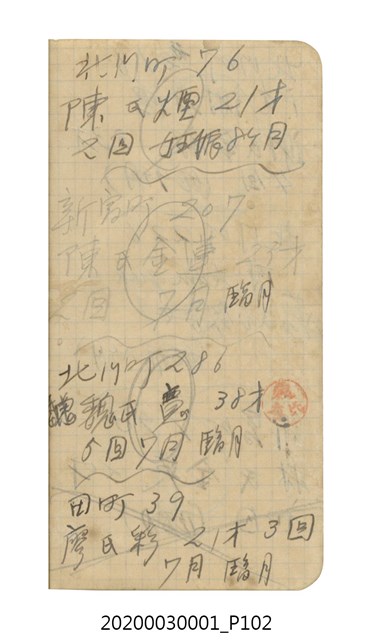 北門町 76
陳氏煙 21才
2回 妊娠8ケ月
新富町 207
陳氏金連 23才
2回 7月 臨月
北門町 286
魏氏 38才
5回 7月 臨月
田町 39
廖氏彩 21才 3回
7月 臨月
20200030001_P102